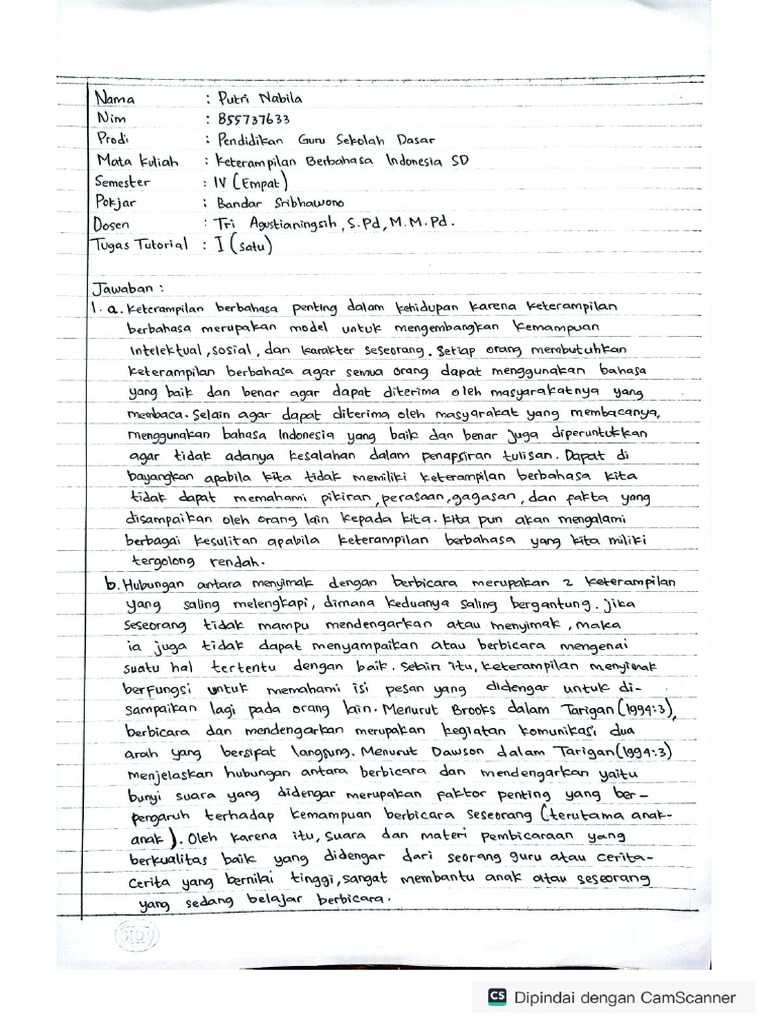 Nama : Putri Nabila
Nim : 855737633
Prodi : Pendidikan Guru Sekolah Dasar
Mata Kuliah : Keterampilan Berbahasa Indonesia SD
Semester : IV (Empat)
Pokjar : Bandar Sribhawono
Dosen : Tri Agustianingsih, S.Pd, M.M.Pd.
Tugas Tutorial : I (Satu)
Jawaban :
1. a. Keterampilan berbahasa penting dalam kehidupan karena keterampilan
berbahasa merupakan model untuk mengembangkan kemampuan
intelektual, sosial, dan karakter seseorang. Setiap orang membutuhkan
keterampilan berbahasa agar semua orang dapat menggunakan bahasa
yang baik dan benar agar dapat diterima oleh masyarakatnya yang
membaca. Selain agar dapat diterima oleh masyarakat yang membacanya,
menggunakan bahasa Indonesia yang baik dan benar juga diperuntukkan
agar tidak adanya kesalahan dalam penapsiran tulisan. Dapat di
bayangkan apabila kita tidak memiliki keterampilan berbahasa kita
tidak dapat memahami pikiran, perasaan, gagasan, dan fakta yang
disampaikan oleh orang lain kepada kita. Kita pun akan mengalami
berbagai kesulitan apabila keterampilan berbahasa yang kita miliki
tergolong rendah.
b. Hubungan antara menyimak dengan berbicara merupakan 2 keterampilan
yang saling melengkapi, dimana keduanya saling bergantung. Jika
seseorang tidak mampu mendengarkan atau menyimak, maka
ia juga tidak dapat menyampaikan atau berbicara mengenai
suatu hal tertentu dengan baik. Selain itu, keterampilan menyimak
berfungsi untuk memahami isi pesan yang didengar untuk di-
sampaikan lagi pada orang lain. Menurut Brooks dalam Tarigan (1994:3),
berbicara dan mendengarkan merupakan kegiatan komunikasi dua
arah yang bersifat langsung. Menurut Dawson dalam Tarigan (1994:3)
menjelaskan hubungan antara berbicara dan mendengarkan yaitu
bunyi suara yang didengar merupakan faktor penting yang ber-
pengaruh terhadap kemampuan berbicara seseorang (terutama anak-
anak). Oleh karena itu, suara dan materi pembicaraan yang
berkualitas baik yang didengar dari seorang guru atau cerita-
cerita yang bernilai tinggi, sangat membantu anak atau seseorang
yang sedang belajar berbicara.
CS Dipindai dengan CamScanner